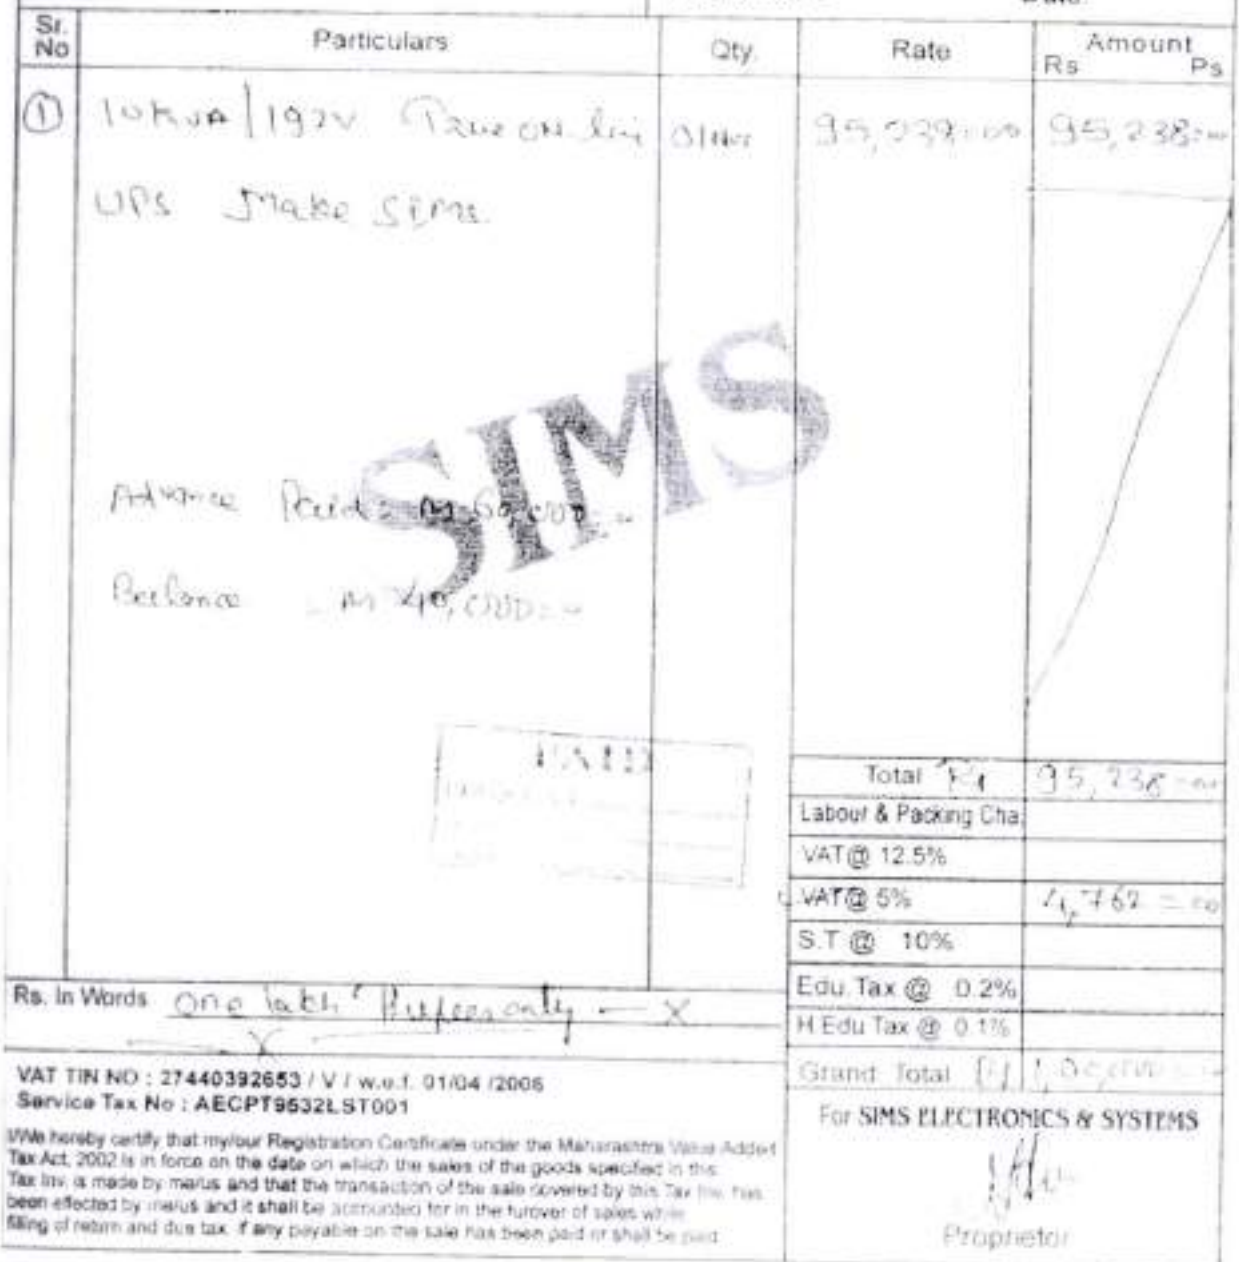 Sr. No Particulars Qty. Rate Amount Rs Ps
① 10KVA/192V ON 95,238=00 95,238=00
UPS Make SIMS.
SIMS
Advance Paid 60,000
Balance 40,000
PAID
Total 95,238=00
Labour & Packing Cha
VAT@ 12.5%
VAT@ 5% 4,762=00
S.T @ 10%
Edu. Tax @ 0.2%
H.Edu Tax @ 0.1%
Grand Total 1,00,000
Rs. In Words One lakh Rupees only — X
X
VAT TIN NO : 27440392653 / V / w.e.f. 01/04 /2006
Service Tax No : AECPT9532LST001
I/We hereby certify that my/our Registration Certificate under the Maharashtra Value Added
Tax Act, 2002 is in force on the date on which the sales of the goods specified in this
Tax Inv. is made by me/us and that the transaction of the sale covered by this Tax Inv. has
been effected by me/us and it shall be accounted for in the turover of sales while
filling of return and due tax. if any payable on the sale has been paid or shall be paid
For SIMS ELECTRONICS & SYSTEMS
Proprietor